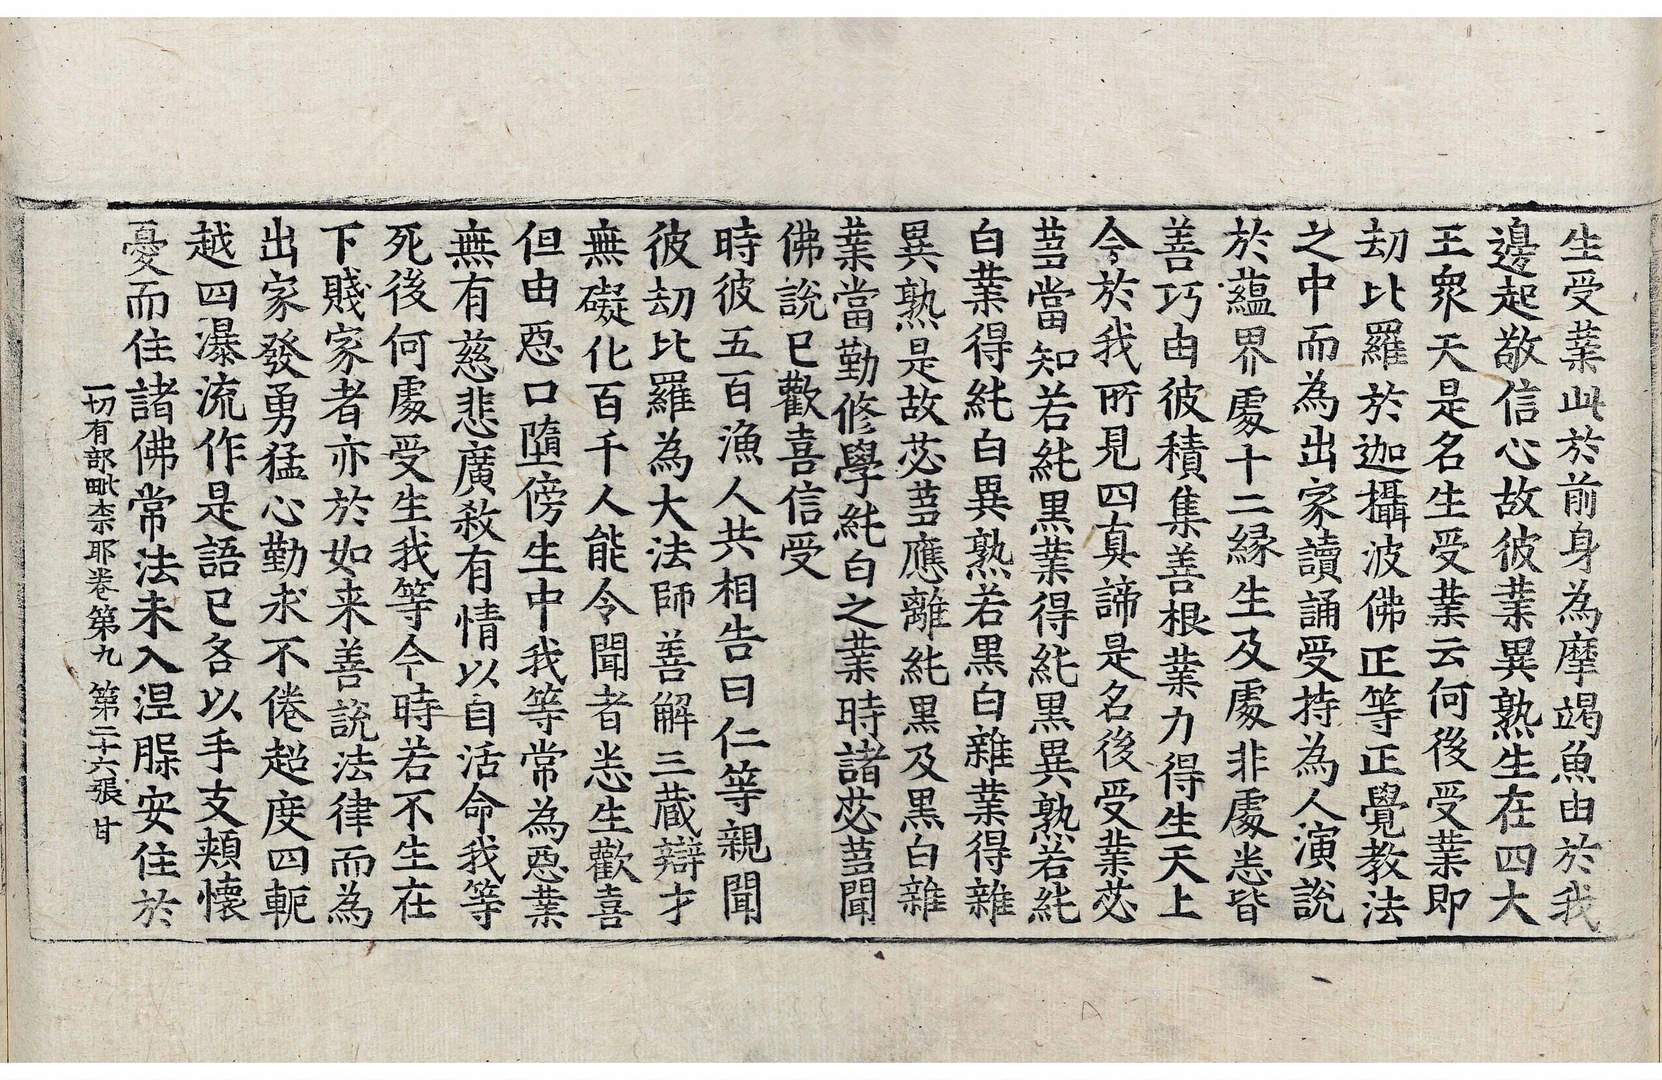 生受業此於前身為摩竭魚由於我
邊起敬信心故彼業異熟生在四大
王衆天是名生受業云何後受業即
劫比羅於迦攝波佛正等正覺教法
之中而為出家讀誦受持為人演說
於蘊界處十二緣生及處非處悉皆
善巧由彼積集善根業力得生天上
今於我所見四真諦是名後受業苾
蒭當知若純黑業得純黑異熟若純
白業得純白異熟若黑白雜業得雜
異熟是故苾蒭應離純黑及黑白雜
業當勤修學純白之業時諸苾蒭聞
佛說已歡喜信受
時彼五百漁人共相告曰仁等親聞
彼劫比羅為大法師善解三藏辯才
無礙化百千人能令聞者悉生歡喜
但由惡口墮傍生中我等常為惡業
無有慈悲廣殺有情以自活命我等
死後何處受生我等今時若不生在
下賤家者亦於如来善說法律而為
出家發勇猛心勤求不倦超度四軛
越四瀑流作是語已各以手支頰懷
憂而住諸佛常法未入涅槃安住於
一切有部毗柰耶卷第九　第二十六張　甘